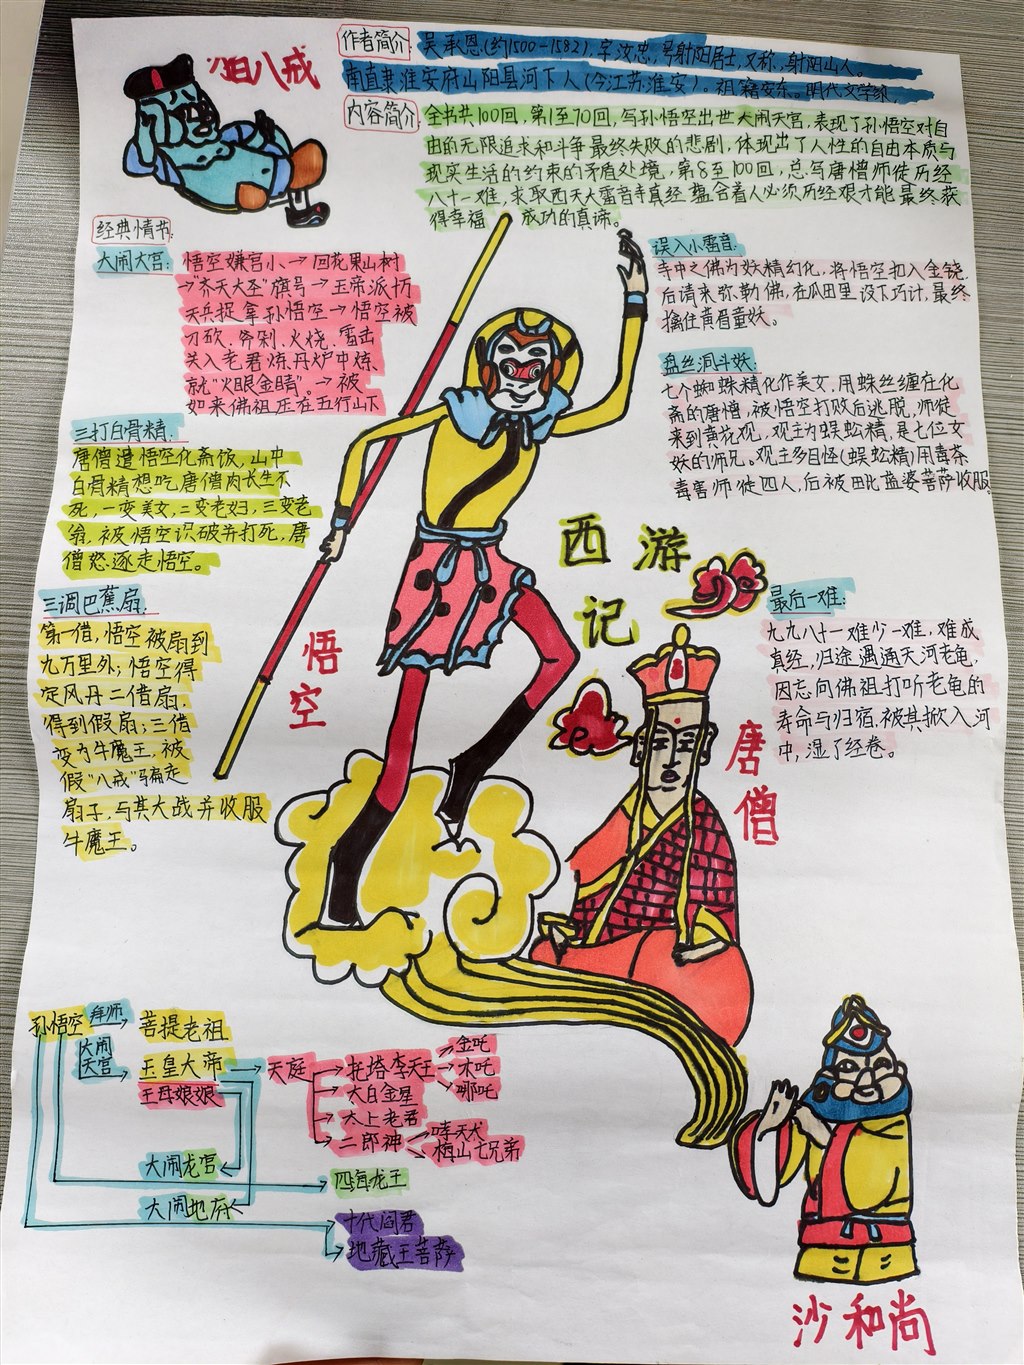 作者简介:
吴承恩(约1500-1582),字汝忠,号射阳居士,又称,射阳山人。
南直隶淮安府山阳县河下人(今江苏淮安)。祖籍安东。明代文学家,
内容简介:
全书共100回,第1至70回,写孙悟空出世大闹天宫,表现了孙悟空对自
由的无限追求和斗争最终失败的悲剧,体现出了人性的自由本质与
现实生活的约束的矛盾处境,第8至100回,总写唐僧师徒历经
八十一难,求取西天大雷音寺真经
着人必须历经艰才能最终获
得幸福
成功的真谛。
八戒
经典情节:
大闹天宫:
悟空嫌官小→回花果山树
→"齐天大圣"旗号→玉帝派
天兵捉拿孙悟空→悟空被
刀砍、斧剁、火烧、雷击
关入老君炼丹炉中炼、
就"火眼金睛"。→被
如来佛祖压在五行山下
三打白骨精:
唐僧遣悟空化斋饭,山中
白骨精想吃唐僧肉长生不
死,一变美女,二变老妇,三变老
翁,被悟空识破并打死,唐
僧怒逐走悟空。
三调巴蕉扇:
第一借,悟空被扇到
九万里外;悟空得
定风丹二借扇,
得到假扇;三借
变为牛魔王,被
假"八戒"骗走
扇子,与其大战并收服
牛魔王。
误入小雷音:
寺中之佛为妖精幻化,将悟空扣入金铙,
后请来弥勒佛,在瓜田里设下巧计,最终
擒住黄眉童妖。
盘丝洞斗妖:
七个蜘蛛精化作美女,用蛛丝缠在化
斋的唐僧,被悟空打败后逃脱,师徒
来到黄花观,观主为蜈蚣精,是七位女
妖的师兄。观主多目怪(蜈蚣精)用毒茶
毒害师徒四人,后被毗蓝婆菩萨收服。
西游
记
最后一难:
九九八十一难少一难,难成
真经,归途遇通天河老龟,
因忘向佛祖打听老龟的
寿命与归宿,被其掀入河
中,湿了经卷。
悟空
唐僧
孙悟空
拜师
菩提老祖
大闹
天宫
玉皇大帝
王母娘娘
天庭
托塔李天王
金吒
木吒
哪吒
太白金星
太上老君
二郎神
哮天犬
梅山七兄弟
大闹龙宫
四海龙王
大闹地府
十代阎君
地藏王菩萨
沙和尚